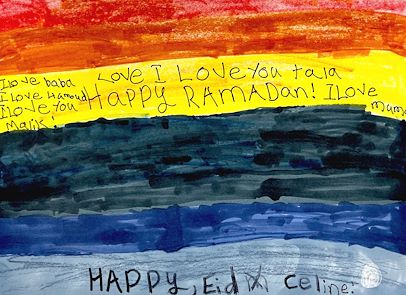 I Love baba
I Love Hamoud
I Love You
Malik!
Love I Love You tala
HAPPY RAMADAN! I Love
mum
HAPPY, Eid Celine: